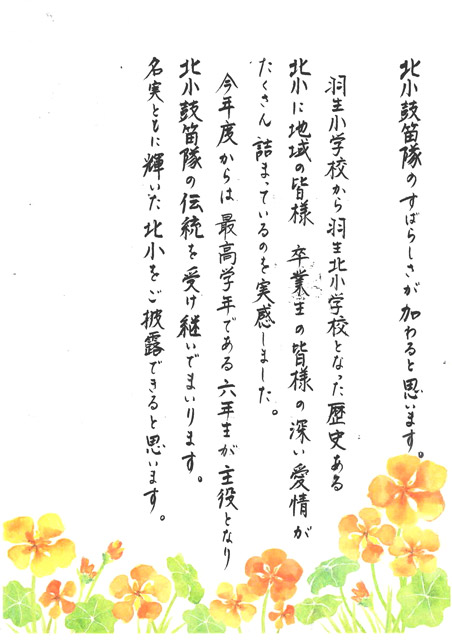 北小鼓笛隊のすばらしさが加わると思います。
羽生小学校から羽生北小学校となった歴史ある
北小に地域の皆様 卒業生の皆様の深い愛情が
たくさん詰まっているのを実感しました。
今年度からは最高学年である六年生が主役となり
北小鼓笛隊の伝統を受け継いでまいります。
名実ともに輝いた北小をご披露できると思います。